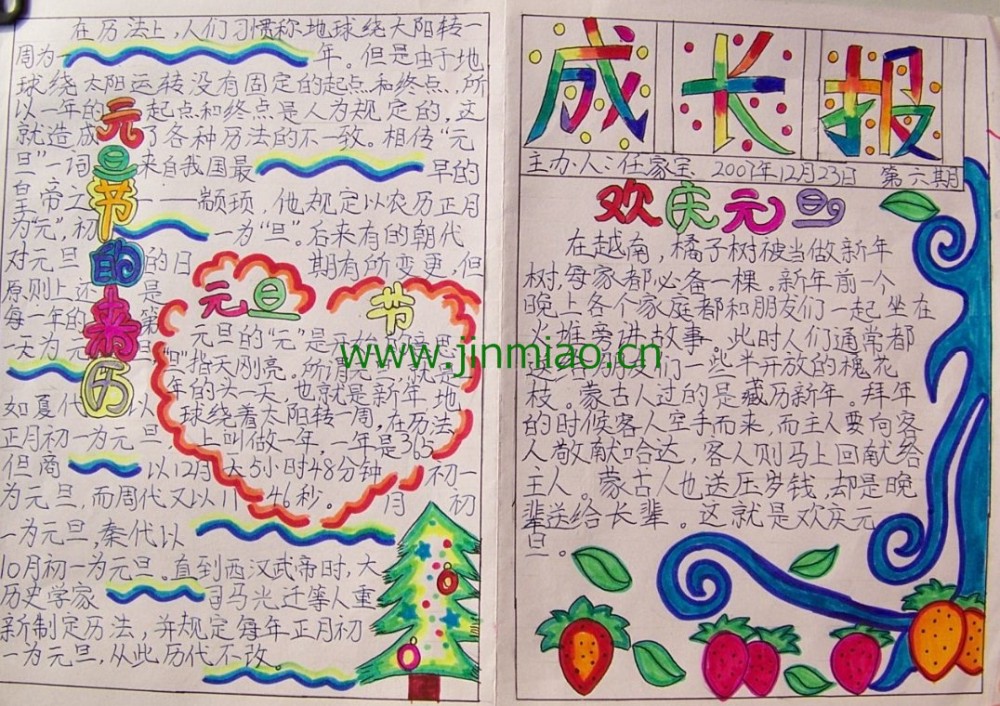 在历法上,人们习惯称地球绕太阳转一
周为 年。但是由于地
球绕太阳运转没有固定的起点和终点,所
以一年的 起点和终点是人为规定的,这
就造成 了各种历法的不一致。相传“元
旦”一词 来自我国最 早的
皇帝之 ——颛顼,他规定以农历正月
为元”,初 一为“旦”。后来有的朝代
对元旦 的日 期有所变更,但
原则上还 是
每一年的 第
天为元
如夏代 以
正月初一为元旦
但商 以12月 初一
为元旦,而周代又以11 月 初
一为元旦,秦代以
10月初一为元旦。直到西汉武帝时,大
历史学家 司马光迁等人重
新制定历法,并规定每年正月初
一为元旦,从此历代不改。
元旦节的来历
元旦 节
元旦的“元”是
“旦”指天刚亮。所谓元旦,就是
年的头一天,也就是新年。地
球绕着太阳转一周,在历法
上叫做一年,一年是365
天5小时48分钟
46秒。
成长报
主办人:任家宝 2007年12月23日 第六期
欢庆元旦
在越南,橘子树被当做新年
树,每家都必备一棵。新年前一个
晚上各个家庭都和朋友们一起坐在
火堆旁讲故事 此时人们通常都
们一些半开放的槐花
枝。蒙古人过的是藏历新年。拜年
的时候客人空手而来,而主人要向客
人敬献哈达,客人则马上回献给
主人。蒙古人也送压岁钱,却是晚
辈送给长辈。这就是欢庆元
旦。
www.jinmiao.cn